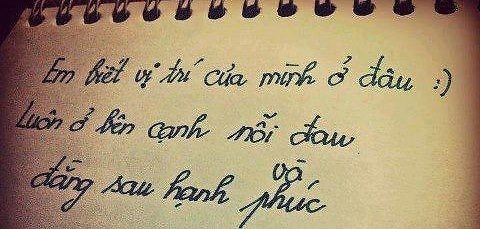 Em biết vị trí của mình ở đâu :)
Luôn ở bên cạnh nỗi đau
và
đằng sau hạnh phúc